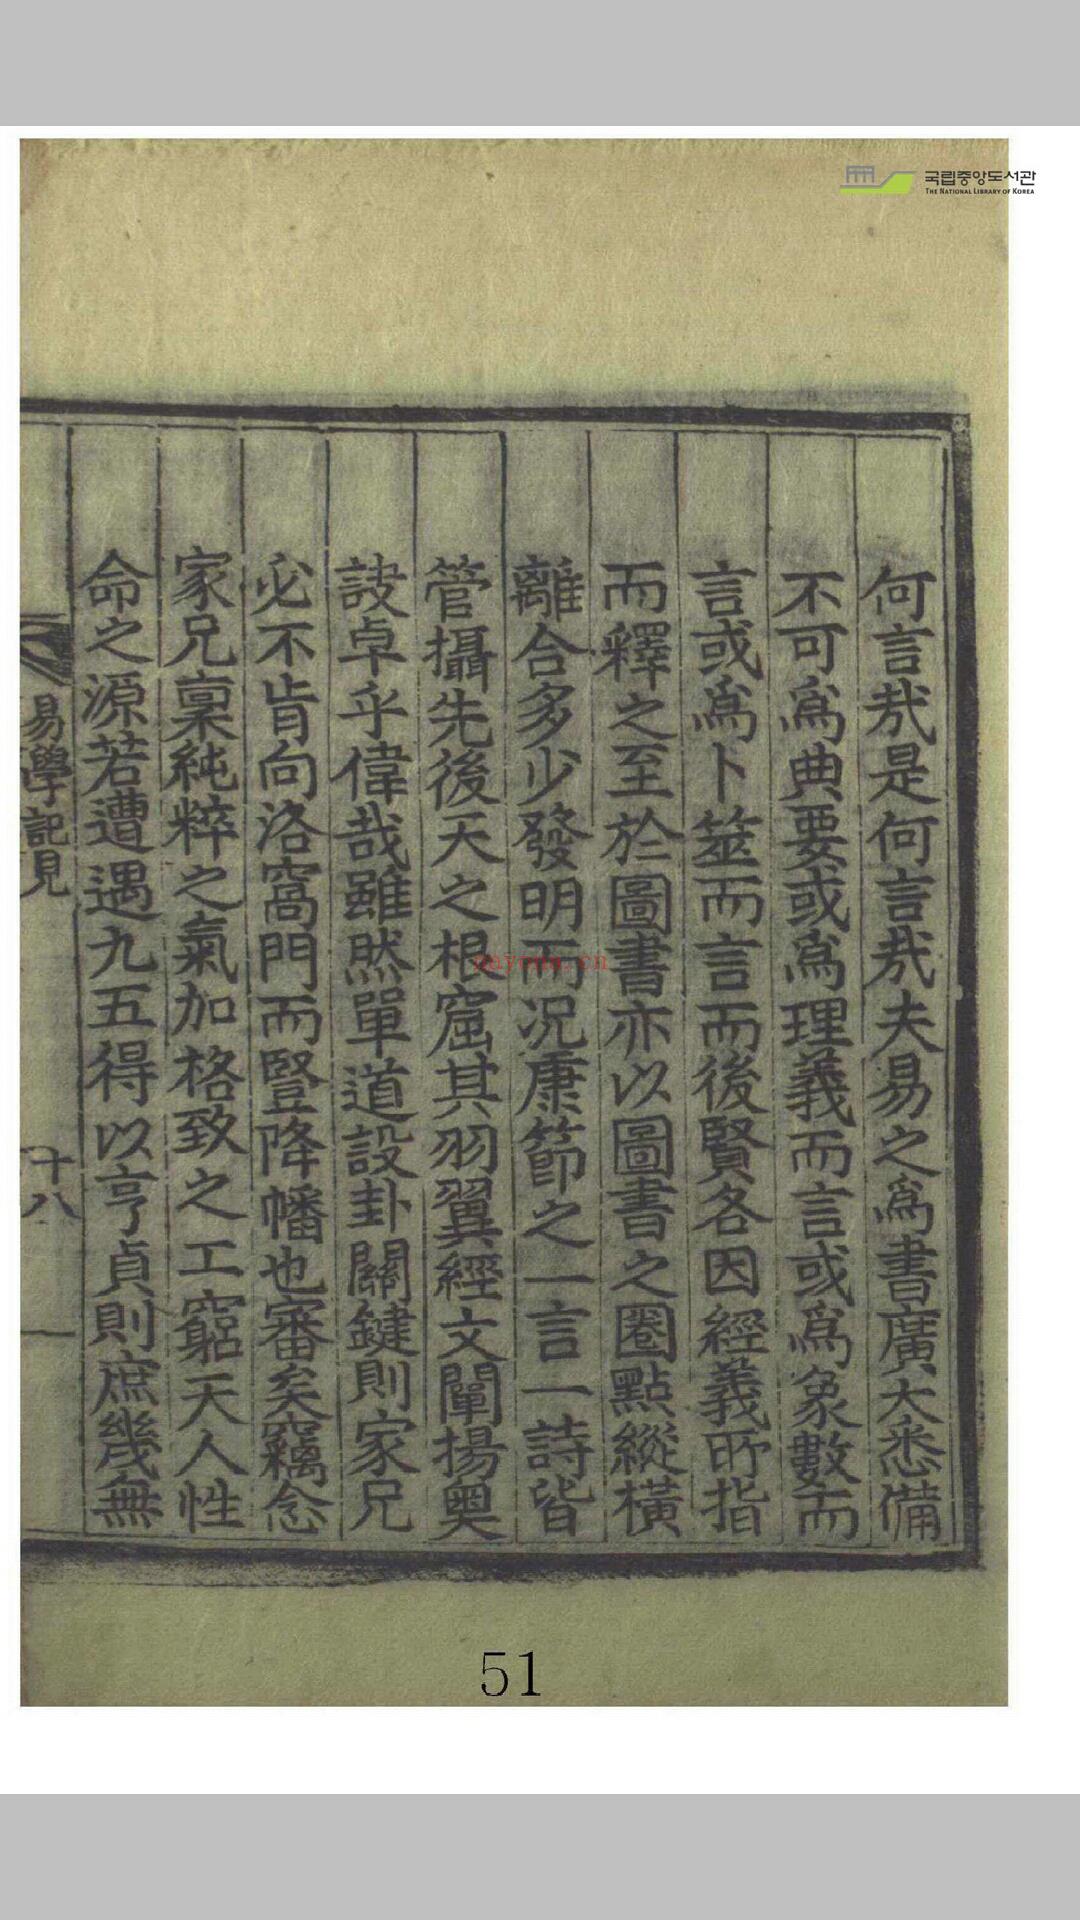 국립중앙도서관
THE NATIONAL LIBRARY OF KOREA
何言㢤是何言㢤夫易之爲書廣大悉備
不可爲典要或爲理義而言或爲象數而
言或爲卜筮而言而後賢各因經義所指
而釋之至於圖書亦以圖書之圈點縱橫
離合多少發明而况康節之一言一詩皆
管攝先後天之根窟其羽翼經文闡揚奧
訣卓乎偉哉雖然單道設卦關鍵則家兄
必不肯向洛窩門而豎降幡也審矣竊念
家兄稟純粹之氣加格致之工窮天人性
命之源若遭遇九五得以亨貞則庶幾無
易學記見
十八
51